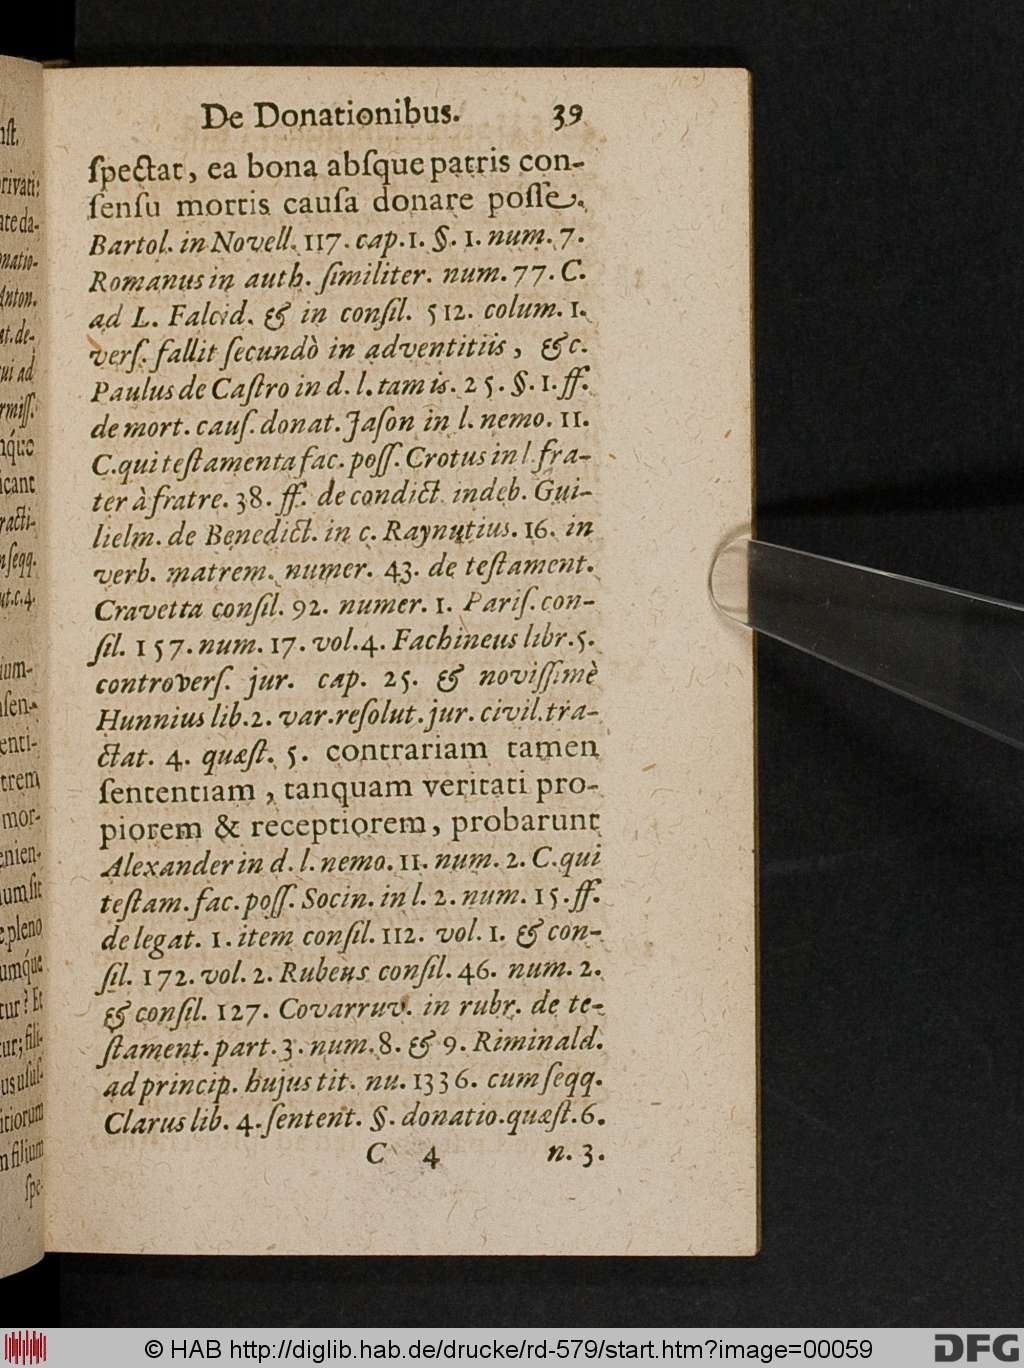 De Donationibus. 39
ſpectat, ea bona abſque patris con-
ſenſu mortis cauſa donare poſſe.
Bartol. in Novell. 117. cap. 1. §. 1. num. 7.
Romanus in auth. ſimiliter. num. 77. C.
ad L. Falcid. & in conſil. 512. colum. 1.
verſ. fallit ſecundò in adventitiis, &c.
Paulus de Caſtro in d. l. tam is. 25. §. 1. ff.
de mort. cauſ. donat. Jaſon in l. nemo. 11.
C. qui teſtamenta fac. poſſ. Crotus in l fra-
ter à fratre. 38. ff. de condict. indeb. Gui-
lielm. de Benedict. in c. Raynutius. 16. in
verb. matrem. numer. 43. de teſtament.
Cravetta conſil. 92. numer. 1. Pariſ. con-
ſil. 157. num. 17. vol. 4. Fachineus libr. 5.
controverſ. jur. cap. 25. & noviſſimè
Hunnius lib. 2. var. reſolut. jur. civil. tra-
ctat. 4. quæſt. 5. contrariam tamen
ſententiam, tanquam veritati pro-
piorem & receptiorem, probarunt
Alexander in d. l. nemo. 11. num. 2. C. qui
teſtam. fac. poſſ. Socin. in l. 2. num. 15. ff.
de legat. 1. item conſil. 112. vol. 1. & con-
ſil. 172. vol. 2. Rubeus conſil. 46. num. 2.
& conſil. 127. Covarruv. in rubr. de te-
ſtament. part. 3. num. 8. & 9. Riminald.
ad princip. hujus tit. nu. 1336. cum ſeqq.
Clarus lib. 4. ſentent. §. donatio. quæſt. 6.
C 4 n. 3.
© HAB http://diglib.hab.de/drucke/rd-579/start.htm?image=00059
DFG